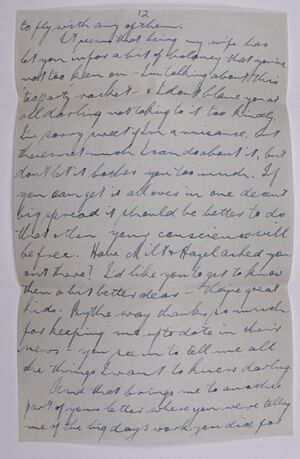 12
to fly with any of them.
It seems that being my wife has
let you in for a bit of baloney that you're
not too keen on - I'm talking about this
'tea party' racket & I don't blame you at
all darling not taking to it too kindly.
I'm sorry sweet if I'm a nuisance, but
there's not much I can do about it, but
don't let it bother you too much. If
you can get it all over in one decent
big spread it should be better to do
that & then your conscience will
be free. Have Milt & Hazel asked you
out there? I'd like you to get to know
them a bit better dear - they're great
kids. By the way thanks so much
for keeping me up to date in their
news - you seem to tell me all
the things I want to know darling.
And that brings me to another
part of your letter where you were telling
me of the big days work you did for